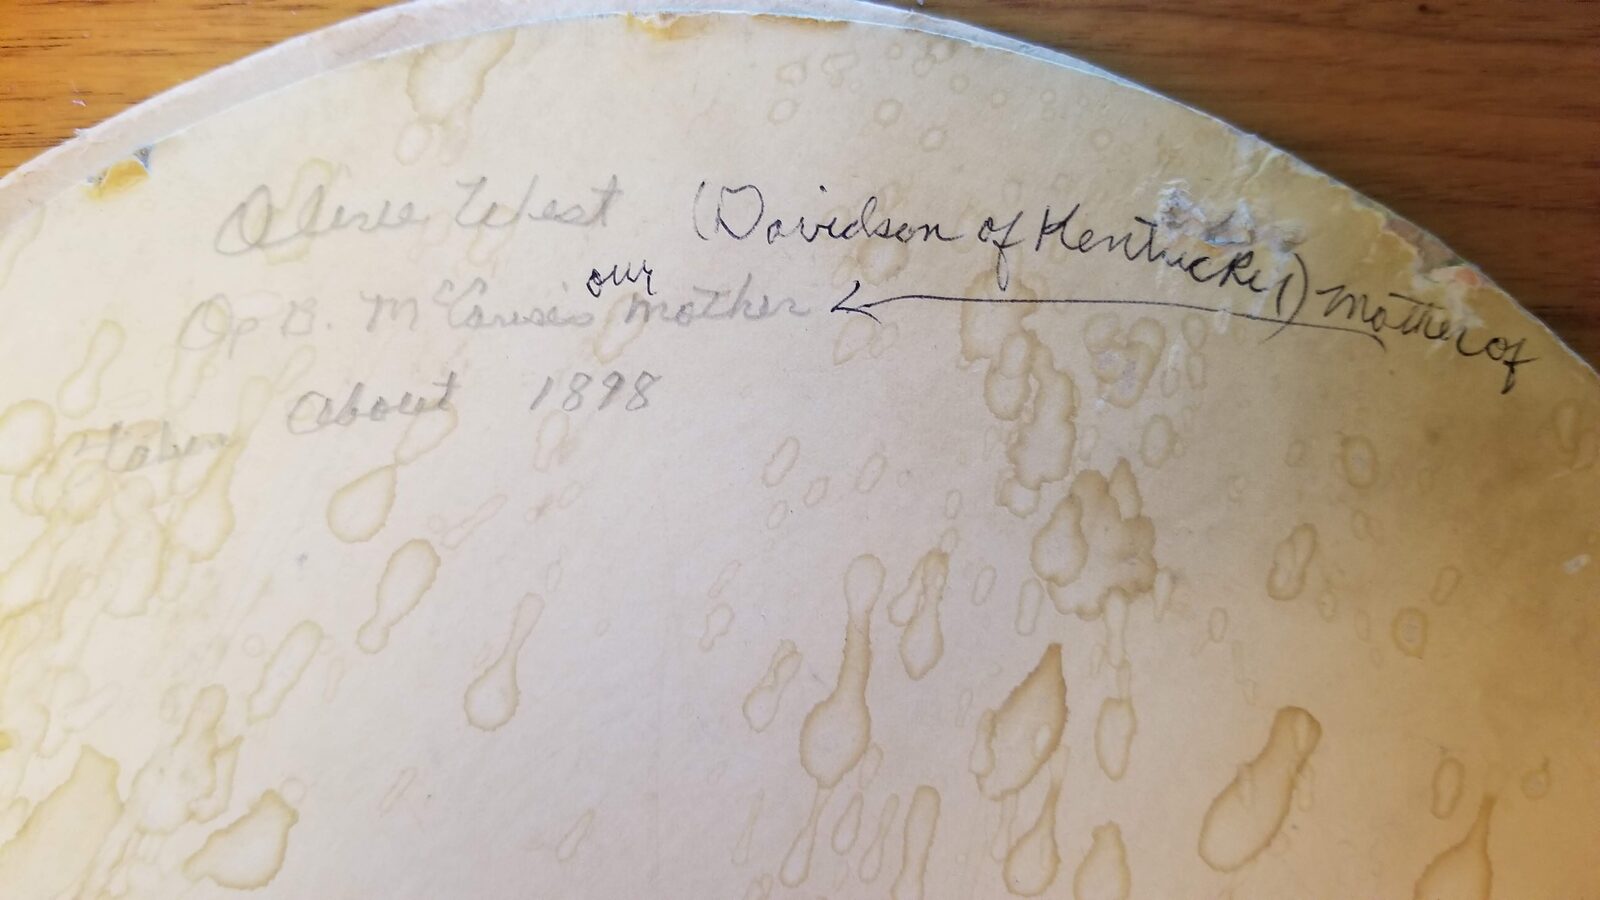 Olive West (Davidson of Kentucky) Mother of
Op B. McCorise's our mother
taken about 1898